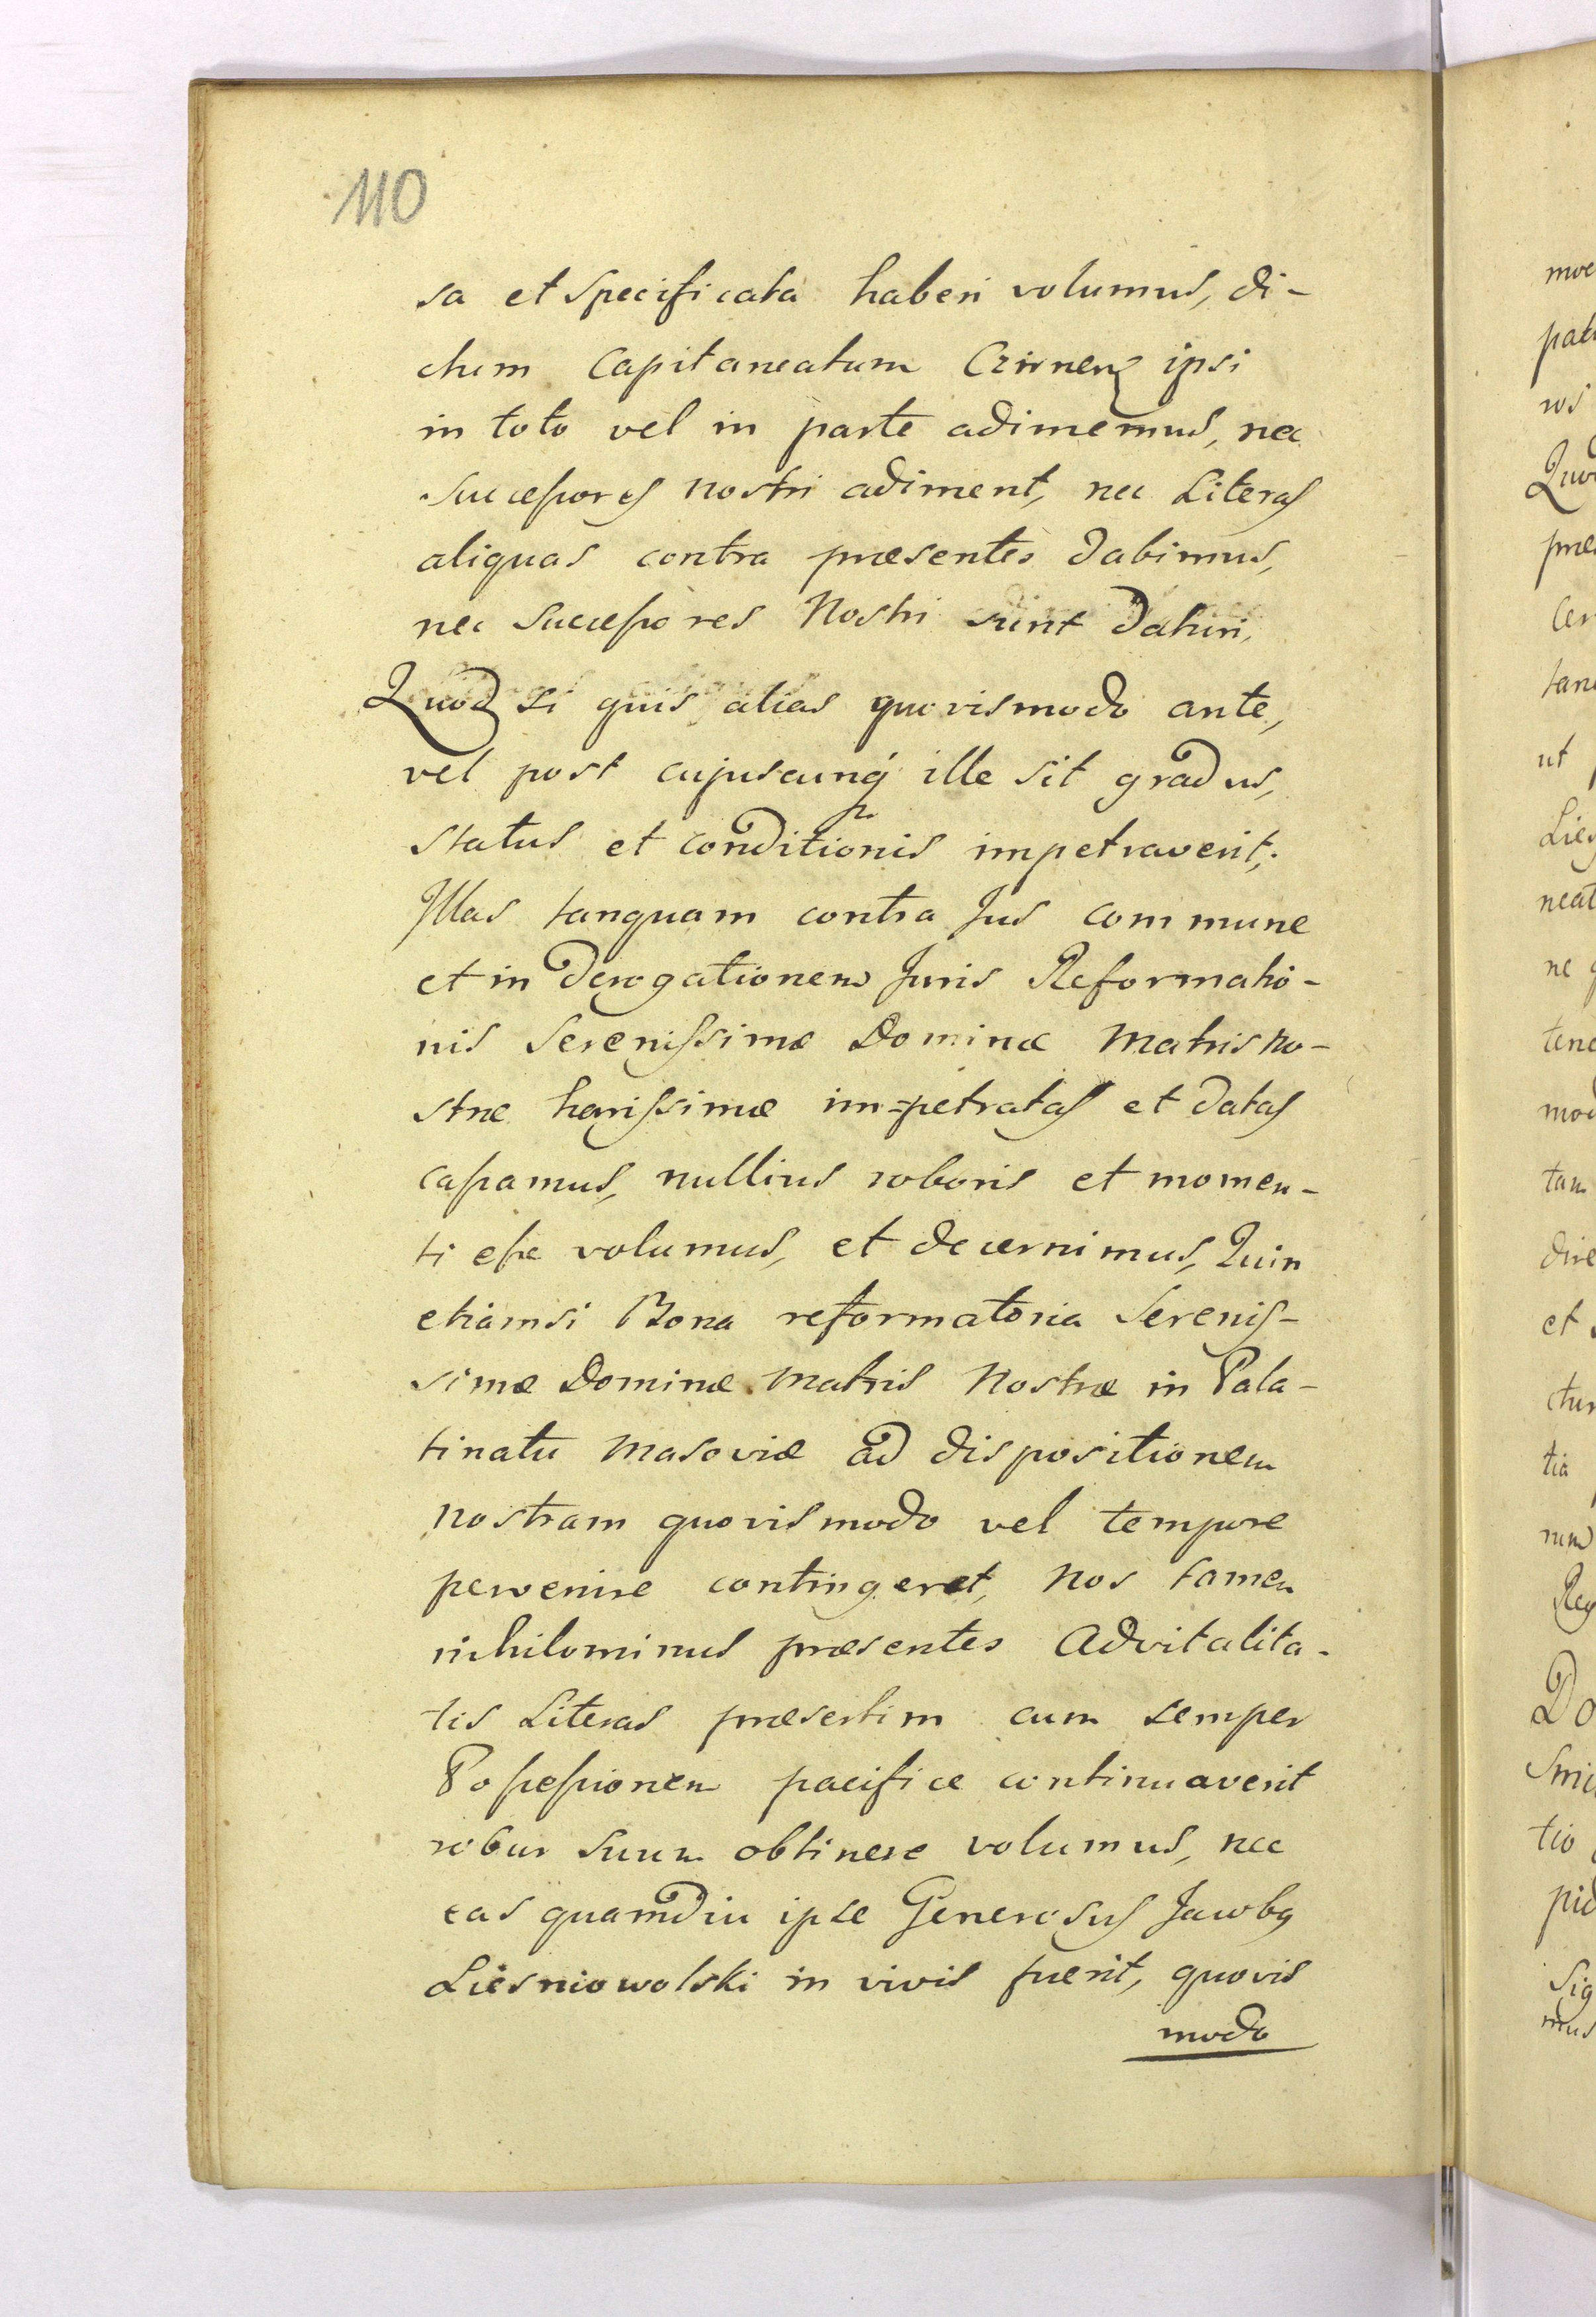 110
sa et specificata haberi volumus, di-
ctum Capitaneatum Czirnen ipsi
in toto vel in parte adimemus, nec
successores nostri adiment, nec Literas
aliquas contra præsentes dabimus,
nec successores Nostri sunt daturi,
Quod si quis alias quovismodo ante,
vel post cujuscunq ille sit gradus,
status et conditionis impetraverit;
Illas tanquam contra Jus commune
et in derogationem Juris Reformatio-
nis Serenissimæ Dominæ Matris no-
stræ harissimæ im=petratas et datas
cassamus, nullius roboris et momen-
ti esse volumus, et decernimus, Quin
etiamsi Bona reformatoria Serenis-
simæ Dominæ Matris Nostræ in Pala-
tinatu Masoviæ ad dispositionem
nostram quovismodo vel tempore
pervenire contingeret, nos tamen
nihilominus præsentes Advitalita-
tis Literas præsertim cum semper
Possessionem pacifice continuaverit
robur suum obtinere volumus, nec
eas quamdiu ipse Generosus Jacobus
Liesniowolski in vivis fuerit, quovis
modo